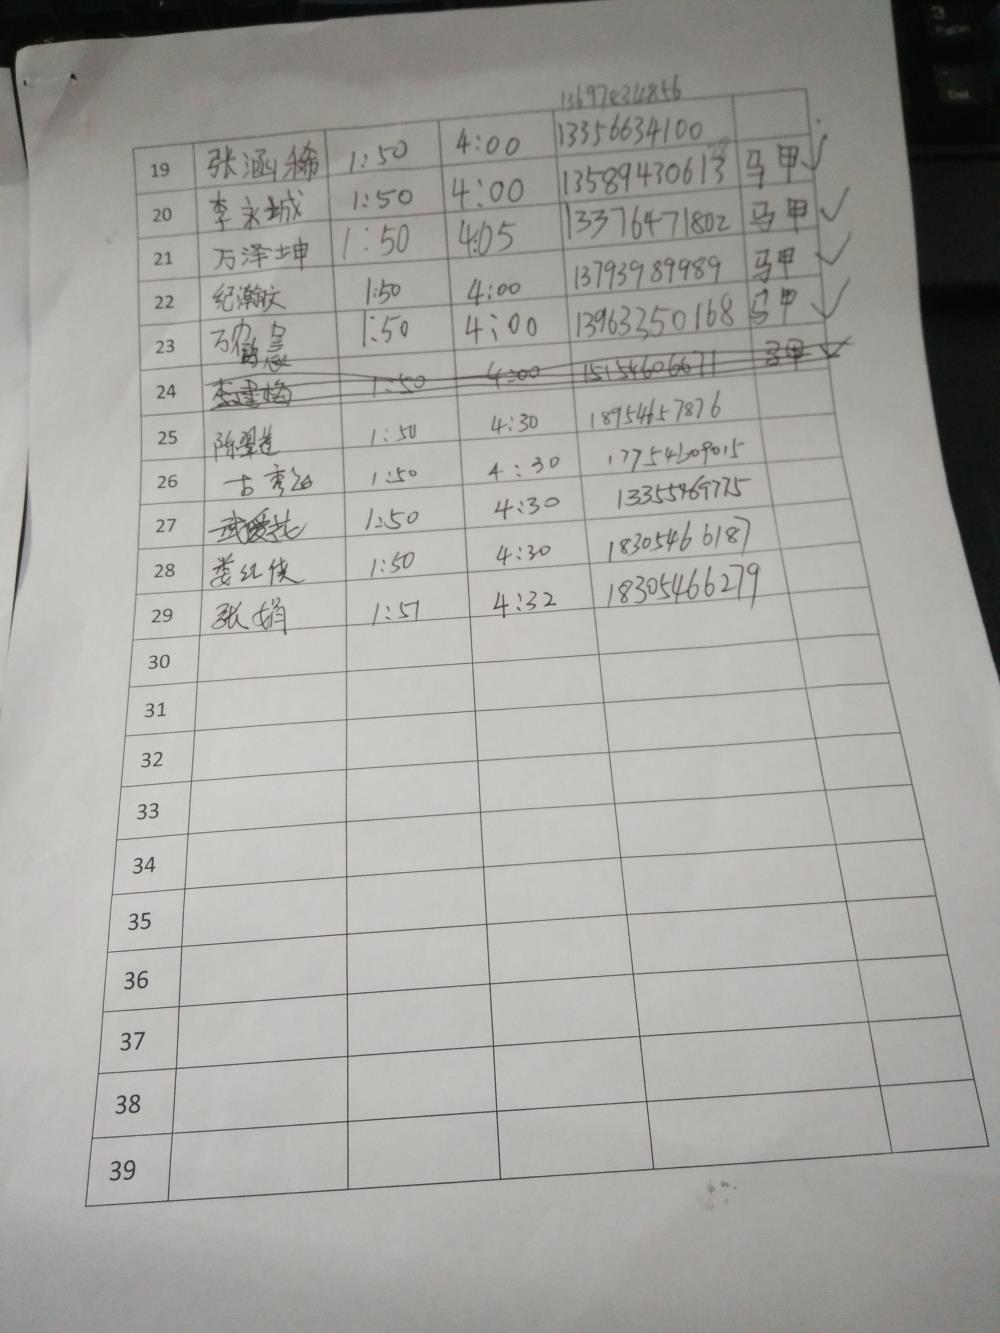 19 张涵稀 1:50 4:00 13356634100
20 李永城 1:50 4:00 13589430613 马甲 ✓
21 万泽坤 1:50 4:05 13376471802 马甲 ✓
22 纪瀚文 1:50 4:00 13793989989 马甲 ✓
23 1:50 4:00 13963350168 马甲 ✓
24 李建梅 1:50 4:00 15154606671 马甲 ✓
25 陈翠莲 1:50 4:30 18954657876
26 1:50 4:30 17754609015
27 武爱花 1:50 4:30 13355469775
28 娄红侠 1:50 4:30 18305466187
29 张娟 1:51 4:32 18305466279
30
31
32
33
34
35
36
37
38
39